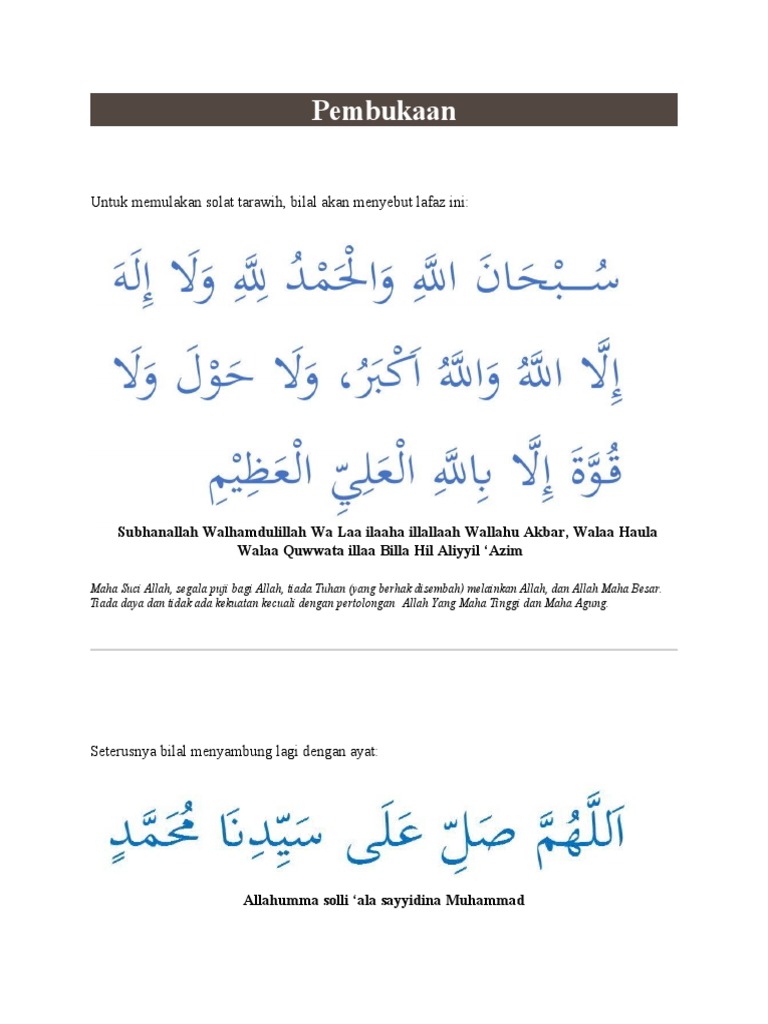 Pembukaan
Untuk memulakan solat tarawih, bilal akan menyebut lafaz ini:
سُـــبْحَانَ اللَّهِ وَالْحَمْدُ لِلَّهِ وَلَا إِلَهَ
إِلَّا اللَّهُ وَاللَّهُ اَكْبَرُ، وَلَا حَوْلَ وَلَا
قُوَّةَ إِلَّا بِاللَّهِ الْعَلِيِّ الْعَظِيْمِ
Subhanallah Walhamdulillah Wa Laa ilaaha illallaah Wallahu Akbar, Walaa Haula
Walaa Quwwata illaa Billa Hil Aliyyil ‘Azim
Maha Suci Allah, segala puji bagi Allah, tiada Tuhan (yang berhak disembah) melainkan Allah, dan Allah Maha Besar.
Tiada daya dan tidak ada kekuatan kecuali dengan pertolongan Allah Yang Maha Tinggi dan Maha Agung.
Seterusnya bilal menyambung lagi dengan ayat:
اَللَّهُمَّ صَلِّ عَلَى سَيِّدِنَا مُحَمَّدٍ
Allahumma solli ‘ala sayyidina Muhammad